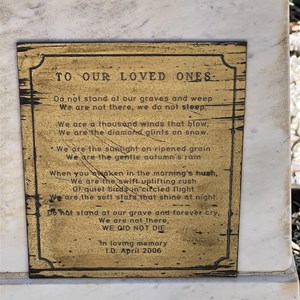 TO OUR LOVED ONES
Do not stand at our graves and weep
We are not there, we do not sleep.
We are a thousand winds that blow,
We are the diamond glints on snow.
We are the sunlight on ripened grain
We are the gentle autumn's rain
When you awaken in the morning's hush,
We are the swift uplifting rush
Of quiet birds in circled flight
We are the soft stars that shine at night
Do not stand at our grave and forever cry,
We are not there,
WE DID NOT DIE
In loving memory
I.D. April 2006